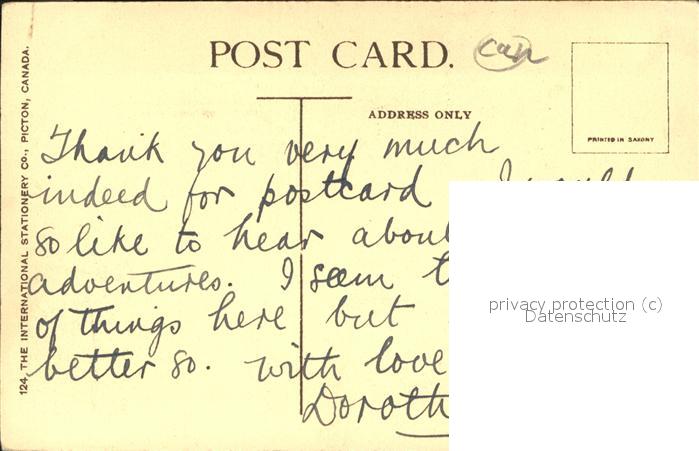 POST CARD.
can
ADDRESS ONLY
PRINTED IN SAXONY
124, THE INTERNATIONAL STATIONERY CO., PICTON, CANADA.
Thank you very much
indeed for postcard I
so like to hear about
adventures. I seem
of things here but
better so. with love
Doroth
privacy protection (c)
Datenschutz